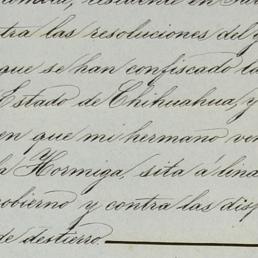 residente en
tra las resoluciones del
que se han confiscado
Estado de Chihuahua, y
en que mi hermano
la Hormiga, sita á
gobierno y contra las
de destierro.